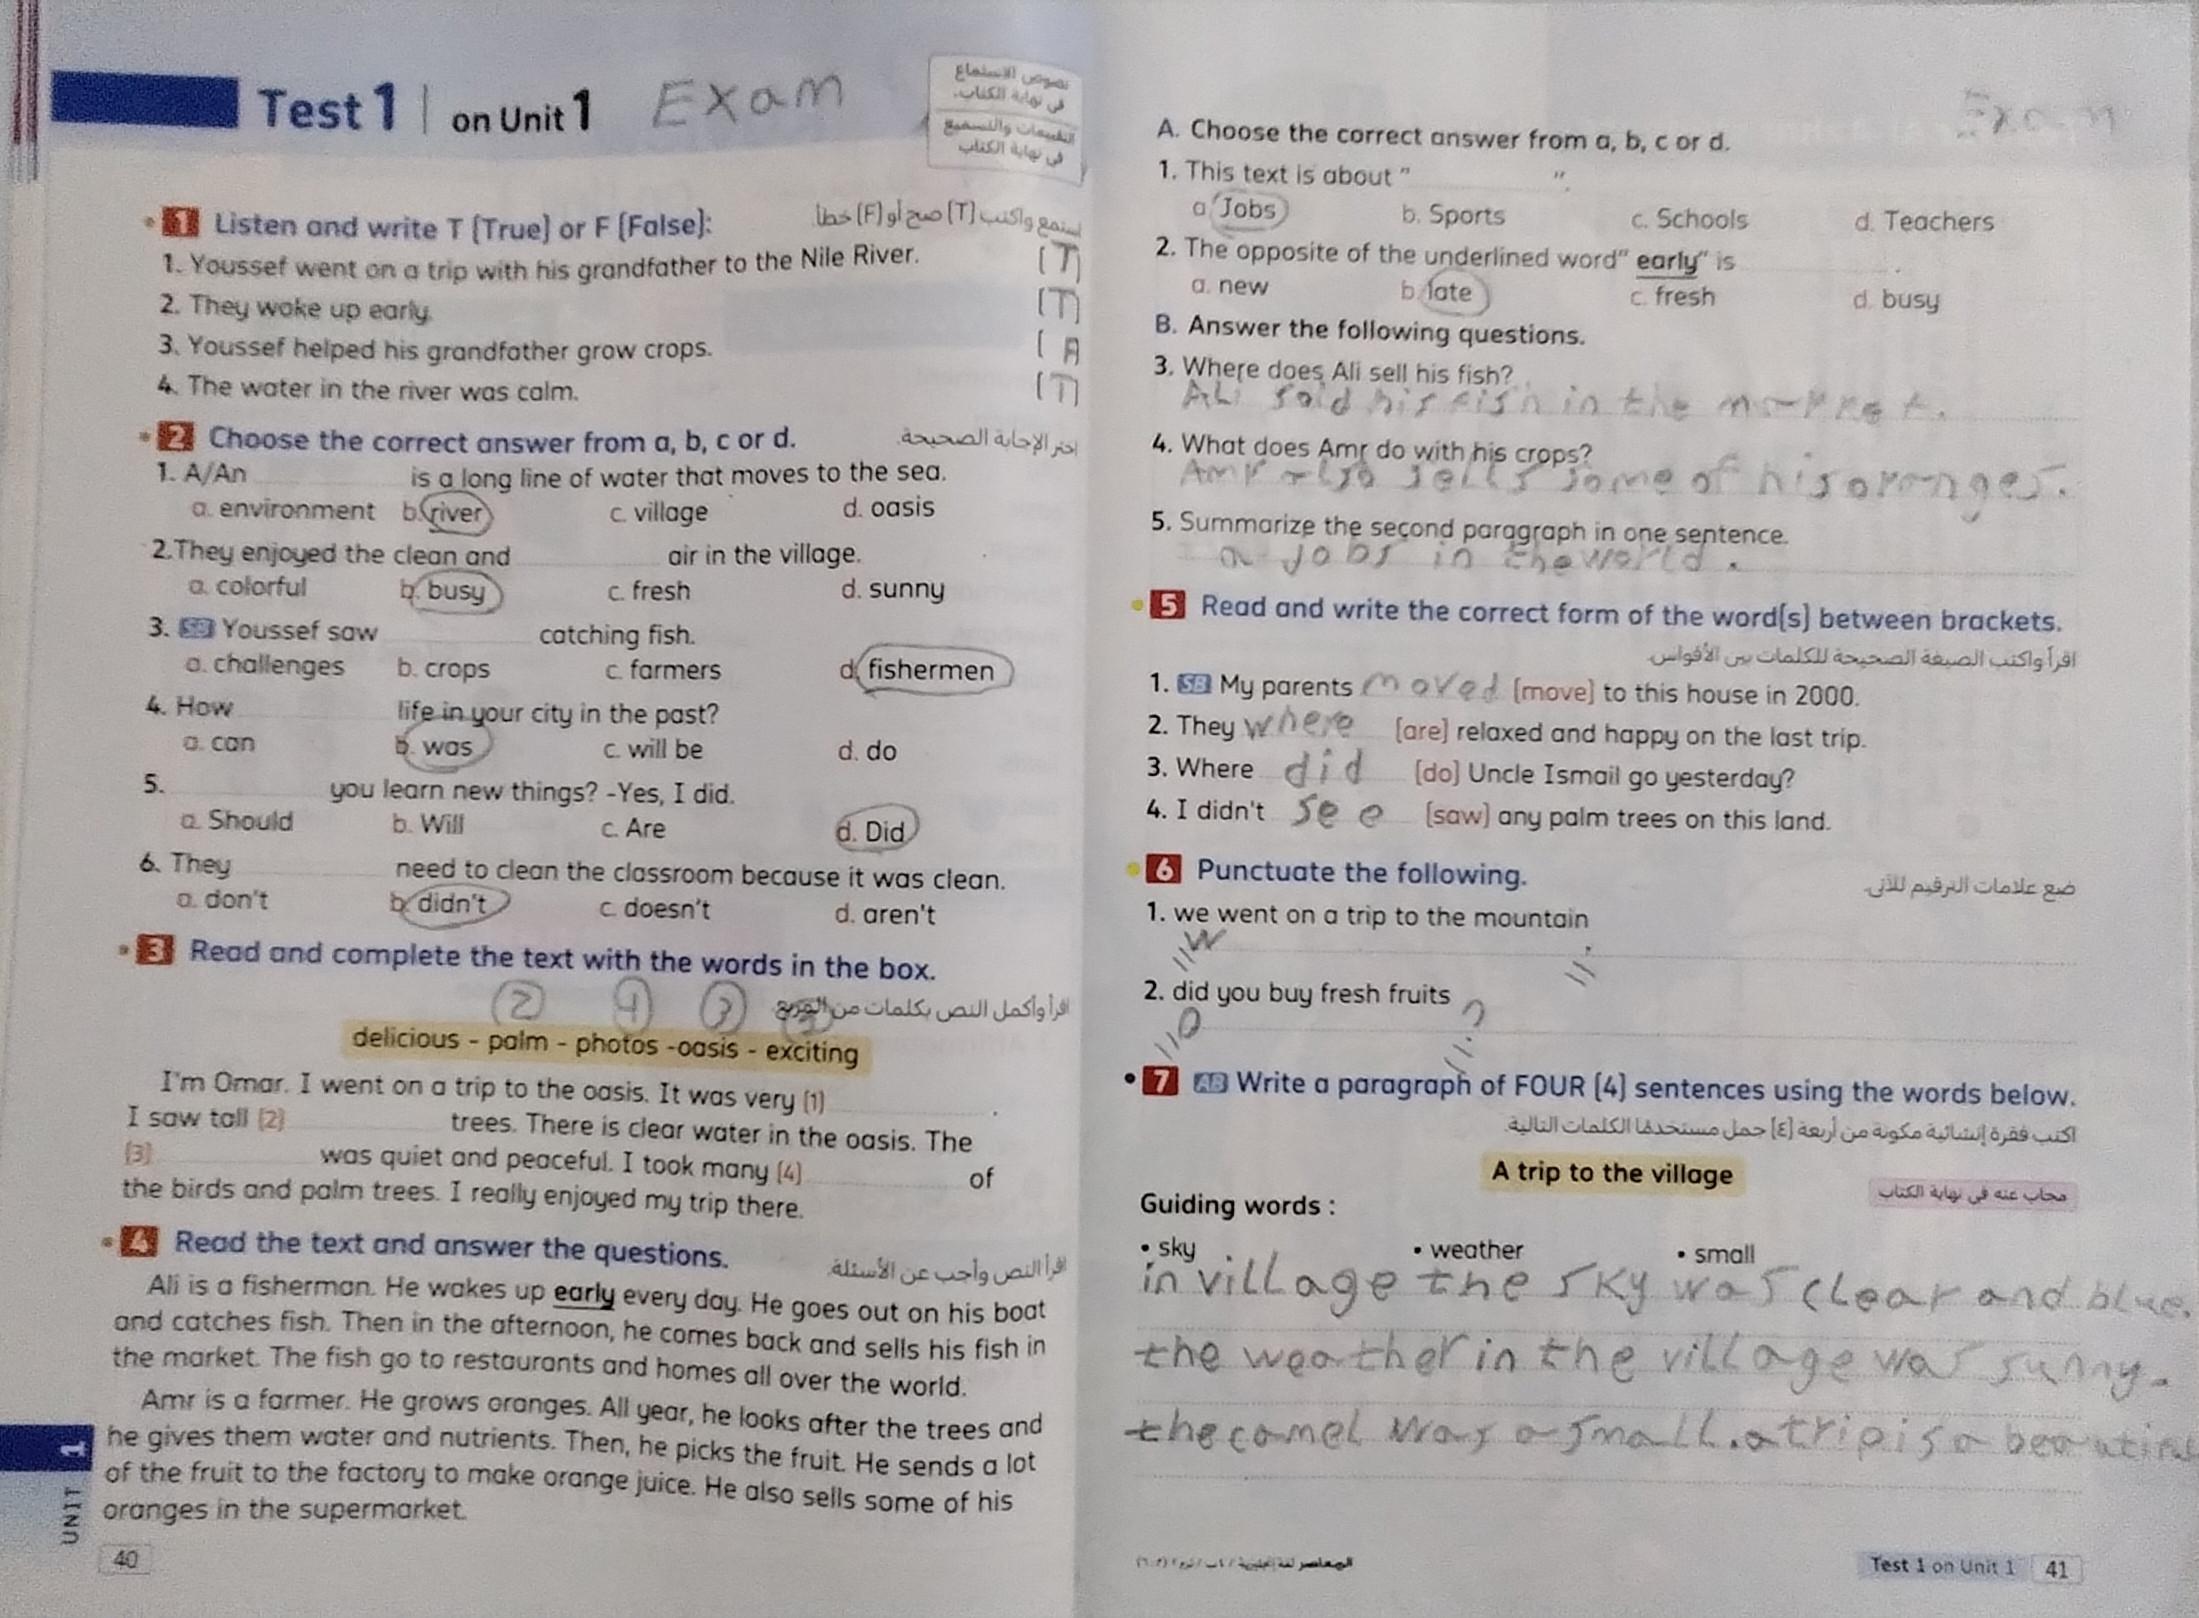 Test 1 | on Unit 1 Exam
نصوص الاستماع
في نهاية الكتاب.
التقييمات والتسميع
في نهاية الكتاب
1 Listen and write T (True) or F (False): استمع واكتب (T) صح أو (F) خطأ
1. Youssef went on a trip with his grandfather to the Nile River. (T)
2. They woke up early. (T)
3. Youssef helped his grandfather grow crops. (
4. The water in the river was calm. (T)
2 Choose the correct answer from a, b, c or d. اختر الإجابة الصحيحة.
1. A/An is a long line of water that moves to the sea.
a. environment b. river c. village d. oasis
2. They enjoyed the clean and air in the village.
a. colorful b. busy c. fresh d. sunny
3. SB Youssef saw catching fish.
a. challenges b. crops c. farmers d. fishermen
4. How life in your city in the past?
a. can b. was c. will be d. do
5. you learn new things? -Yes, I did.
a. Should b. Will c. Are d. Did
6. They need to clean the classroom because it was clean.
a. don't b. didn't c. doesn't d. aren't
3 Read and complete the text with the words in the box.
اقرأ وأكمل النص بكلمات من المربع
2 4 3
delicious - palm - photos -oasis - exciting
I'm Omar. I went on a trip to the oasis. It was very (1) .
I saw tall (2) trees. There is clear water in the oasis. The
(3) was quiet and peaceful. I took many (4) of
the birds and palm trees. I really enjoyed my trip there.
4 Read the text and answer the questions. اقرأ النص وأجب عن الأسئلة.
Ali is a fisherman. He wakes up early every day. He goes out on his boat
and catches fish. Then in the afternoon, he comes back and sells his fish in
the market. The fish go to restaurants and homes all over the world.
Amr is a farmer. He grows oranges. All year, he looks after the trees and
he gives them water and nutrients. Then, he picks the fruit. He sends a lot
of the fruit to the factory to make orange juice. He also sells some of his
oranges in the supermarket.
UNIT 1
40
Exam
A. Choose the correct answer from a, b, c or d.
1. This text is about " ".
a. Jobs b. Sports c. Schools d. Teachers
2. The opposite of the underlined word" early" is .
a. new b. late c. fresh d. busy
B. Answer the following questions.
3. Where does Ali sell his fish?
Ali sold his fish in the market.
4. What does Amr do with his crops?
Amr also sells some of his oranges.
5. Summarize the second paragraph in one sentence.
a jobs in the world.
5 Read and write the correct form of the word(s) between brackets.
اقرأ واكتب الصيغة الصحيحة للكلمات بين الأقواس.
1. SB My parents moved (move) to this house in 2000.
2. They where (are) relaxed and happy on the last trip.
3. Where did (do) Uncle Ismail go yesterday?
4. I didn't see (saw) any palm trees on this land.
6 Punctuate the following. ضع علامات الترقيم للآتي.
1. we went on a trip to the mountain
W .
2. did you buy fresh fruits
D ?
7 AB Write a paragraph of FOUR (4) sentences using the words below.
اكتب فقرة إنشائية مكونة من أربعة (٤) جمل مستخدمًا الكلمات التالية.
A trip to the village
مجاب عنه في نهاية الكتاب
Guiding words :
• sky • weather • small
in village the sky was clear and blue.
the weather in the village was sunny.
the camel was a small. a trip is a
Test 1 on Unit 1 41